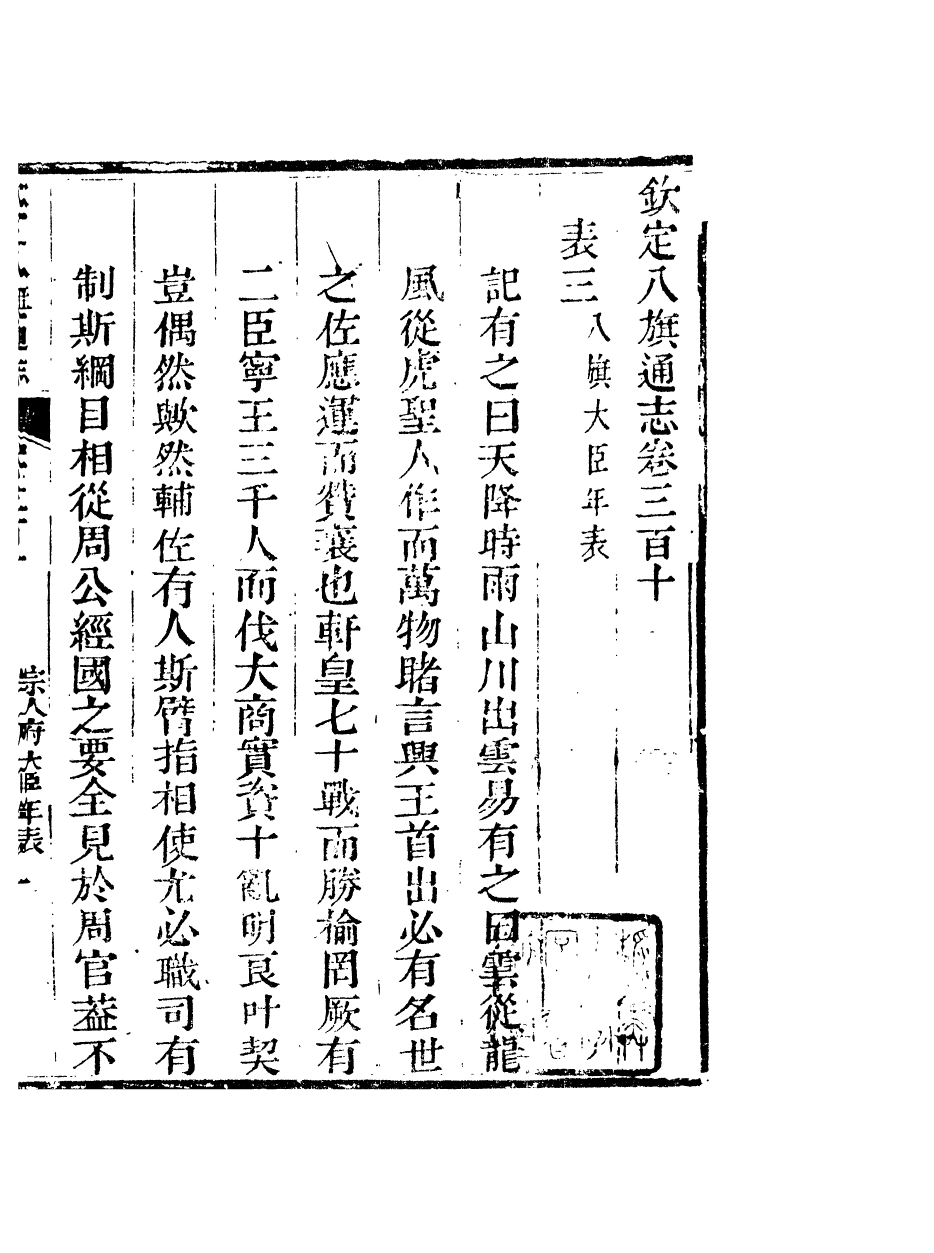 欽定八旗通志卷三百十
表三八旗大臣年表
記有之曰天降時雨山川出雲易有之曰雲從龍
風從虎聖人作而萬物睹言興王首出必有名世
之佐應運而贊襄也軒皇七十戰而勝榆罔厥有
二臣寧王三千人而伐大商實資十亂明良叶契
豈偶然歟然輔佐有人斯臂指相使尤必職司有
制斯綱目相從周公經國之要全見於周官葢不
宗人府大臣年表一